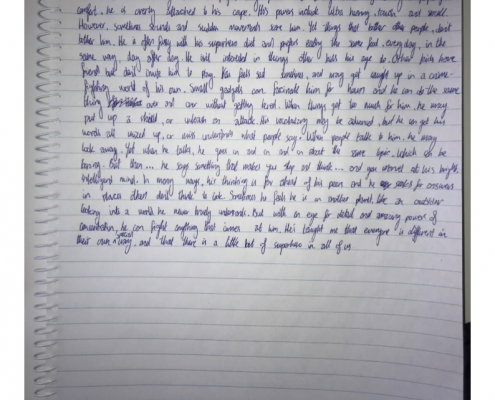 comfort. he is overly attached to his cape. His powers include ultra hearing, touch and smell.
However, sometimes sounds and sudden movements scare him. Yet things that bother other people, don't
bother him. He is often fussy with his superhero diet and prefers eating the same food, every day, in the
same way, day after day. He isn't interested in things other kids his age do. Other kids have
friends but don't invite him to play. Ken feels sad sometimes, and may get caught up in a crime-
fighting world of his own. Small gadgets can fascinate him for hours and he can do the same
thing over and over without getting bored. When things get too much for him, he may
put up a shield, or unleash an attack. His vocabulary may be advanced, but he can get his
words all mixed up, or even understand what people say. When people talk to him, he may
look away. Yet when he talks, he goes on and on and on about the same topic. Which can be
boring. But then... he says something that makes you stop and think... and you marvel at his bright,
intelligent mind. In many ways, his thinking is far ahead of his peers and he seeks for answers
in places others don't think to look. Sometimes he feels he is on another planet, like an outsider
looking into a world he never truly understands. But with an eye for detail and amazing power of
concentration, he can fight anything that comes at him. He's taught me that everyone is different in
their own special way, and that there is a little bit of superhero in all of us